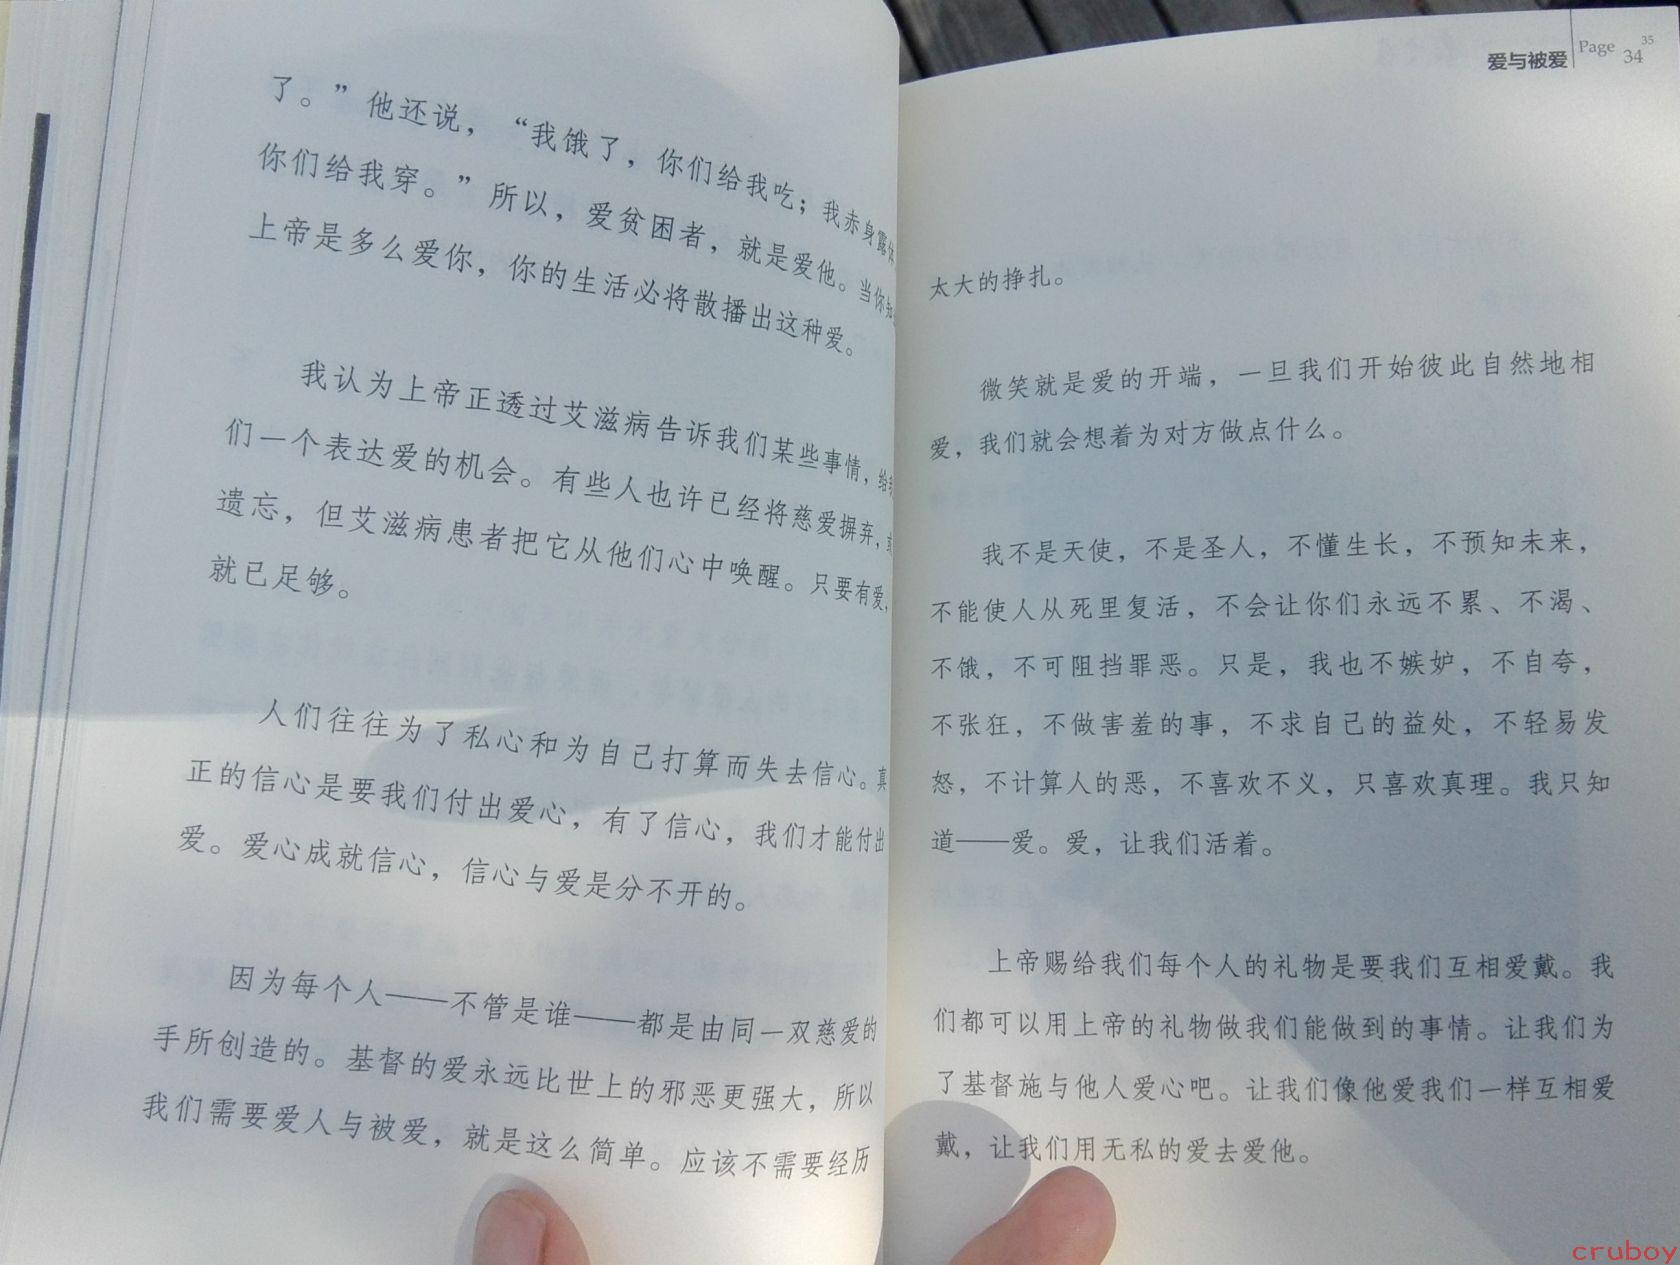 了。”他还说，“我饿了，你们给我吃；我赤身露体
你们给我穿。”所以，爱贫困者，就是爱他。当你知
上帝是多么爱你，你的生活必将散播出这种爱。
我认为上帝正透过艾滋病告诉我们某些事情，给我
们一个表达爱的机会。有些人也许已经将慈爱摒弃，或
遗忘，但艾滋病患者把它从他们心中唤醒。只要有爱，
就已足够。
人们往往为了私心和为自己打算而失去信心。真
正的信心是要我们付出爱心，有了信心，我们才能付出
爱。爱心成就信心，信心与爱是分不开的。
因为每个人——不管是谁——都是由同一双慈爱的
手所创造的。基督的爱永远比世上的邪恶更强大，所以
我们需要爱人与被爱，就是这么简单。应该不需要经历
爱与被爱 Page 34 35
太大的挣扎。
微笑就是爱的开端，一旦我们开始彼此自然地相
爱，我们就会想着为对方做点什么。
我不是天使，不是圣人，不懂生长，不预知未来，
不能使人从死里复活，不会让你们永远不累、不渴、
不饿，不可阻挡罪恶。只是，我也不嫉妒，不自夸，
不张狂，不做害羞的事，不求自己的益处，不轻易发
怒，不计算人的恶，不喜欢不义，只喜欢真理。我只知
道——爱。爱，让我们活着。
上帝赐给我们每个人的礼物是要我们互相爱戴。我
们都可以用上帝的礼物做我们能做到的事情。让我们为
了基督施与他人爱心吧。让我们像他爱我们一样互相爱
戴，让我们用无私的爱去爱他。
cruboy